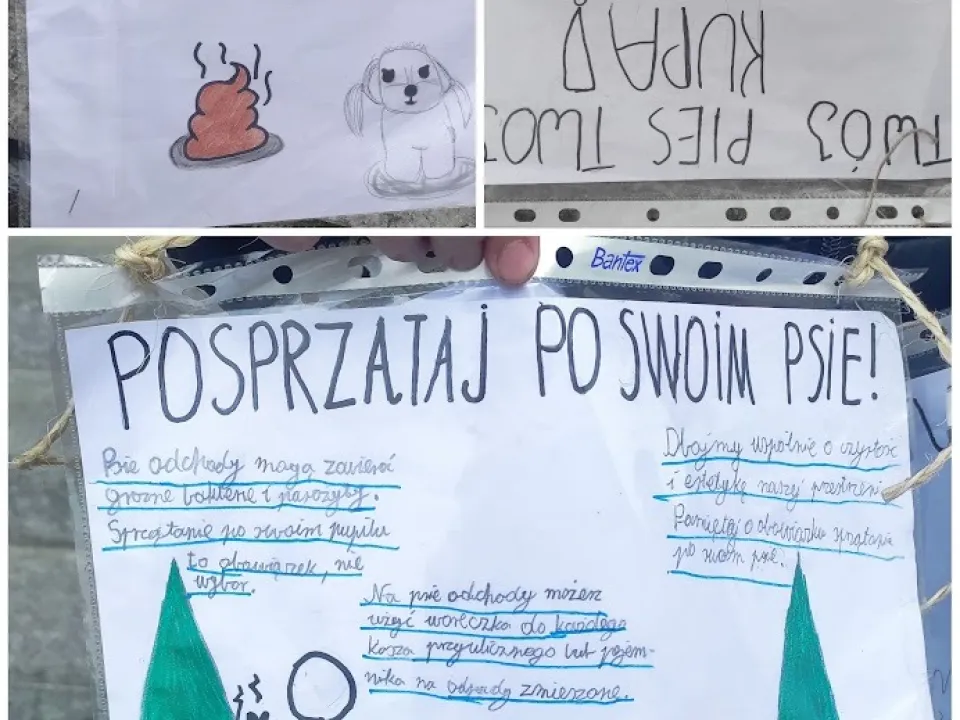 TWÓJ PIES TWOJ
KUPA
Bantex
POSPRZATAJ PO SWOIM PSIE!
Psie odchody mogą zawierać
groźne bakterie i pasożyty.
Sprzątanie po swoim pupilu
to obowiązek, nie
wybór.
Dbajmy wspólnie o czystość
i estetykę naszej przestrzeni
Pamiętaj o obowiązku sprzątania
po swoim psie.
Na psie odchody możesz
użyć woreczka do każdego
kosza przyulicznego lub pojem-
nika na odpady zmieszane.